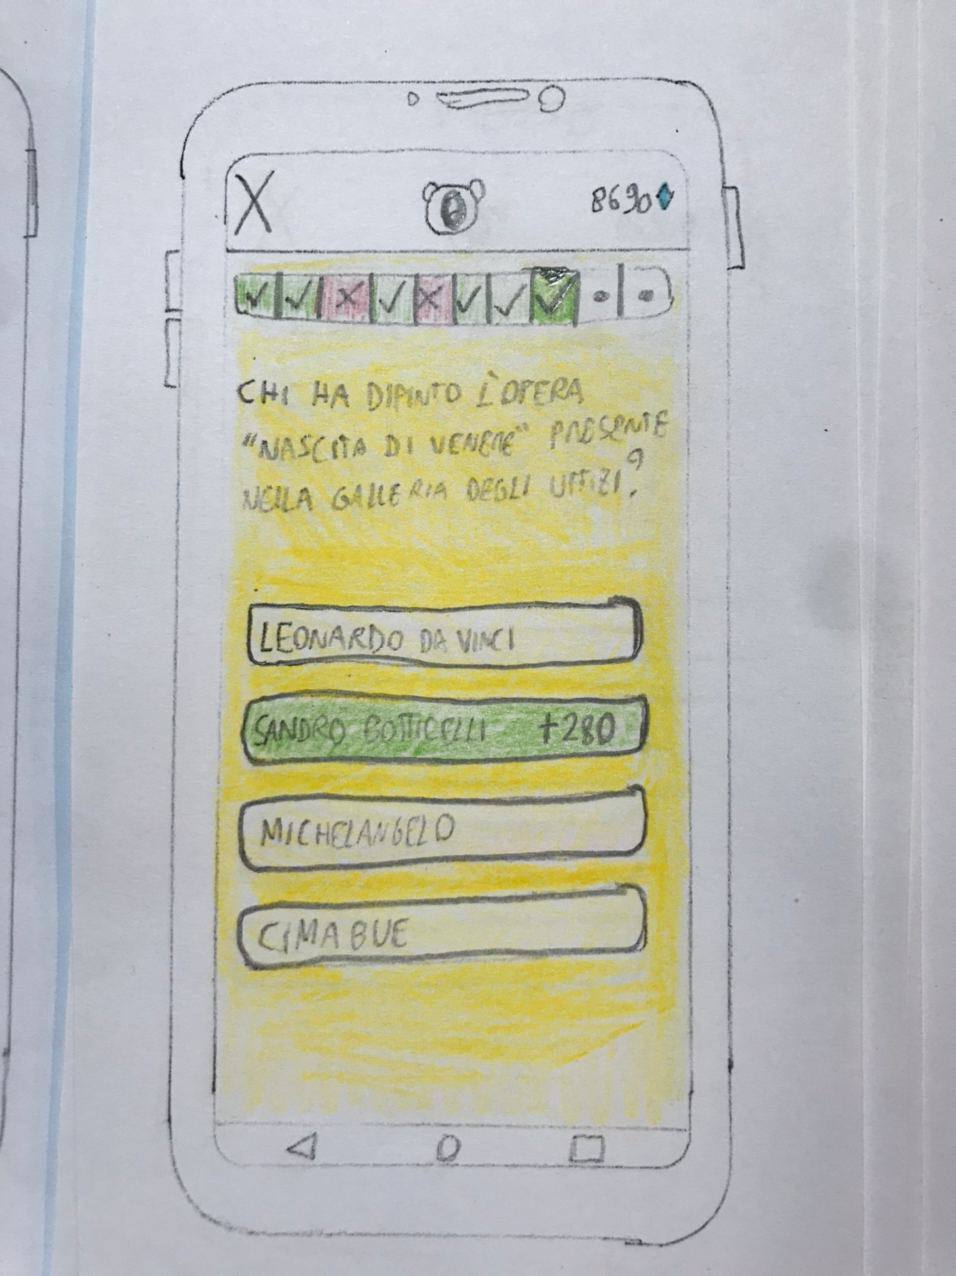 X
8690
CHI HA DIPINTO L'OPERA
"NASCITA DI VENERE" PRESENTE
NELLA GALLERIA DEGLI UFFIZI?
LEONARDO DA VINCI
SANDRO BOTTICELLI +280
MICHELANGELO
CIMABUE